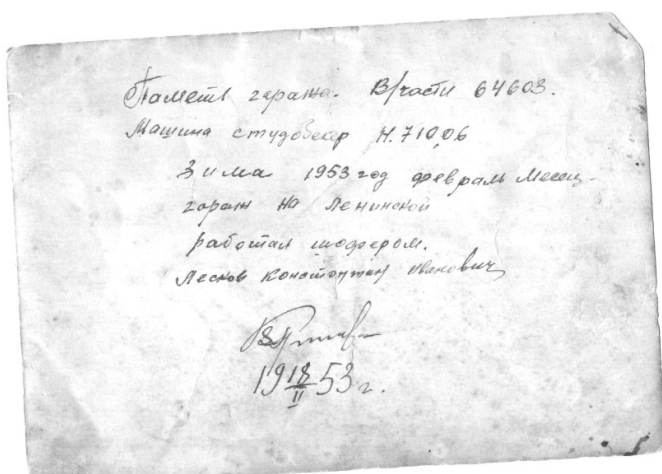 Память гаража. В/части 64603.
Машина студобекр Н.71006
Зима 1953 год февраль Месец-
гараж на Ленинской
работал шофером.
Лесков Константин Иванович
19 18/II 53 г.